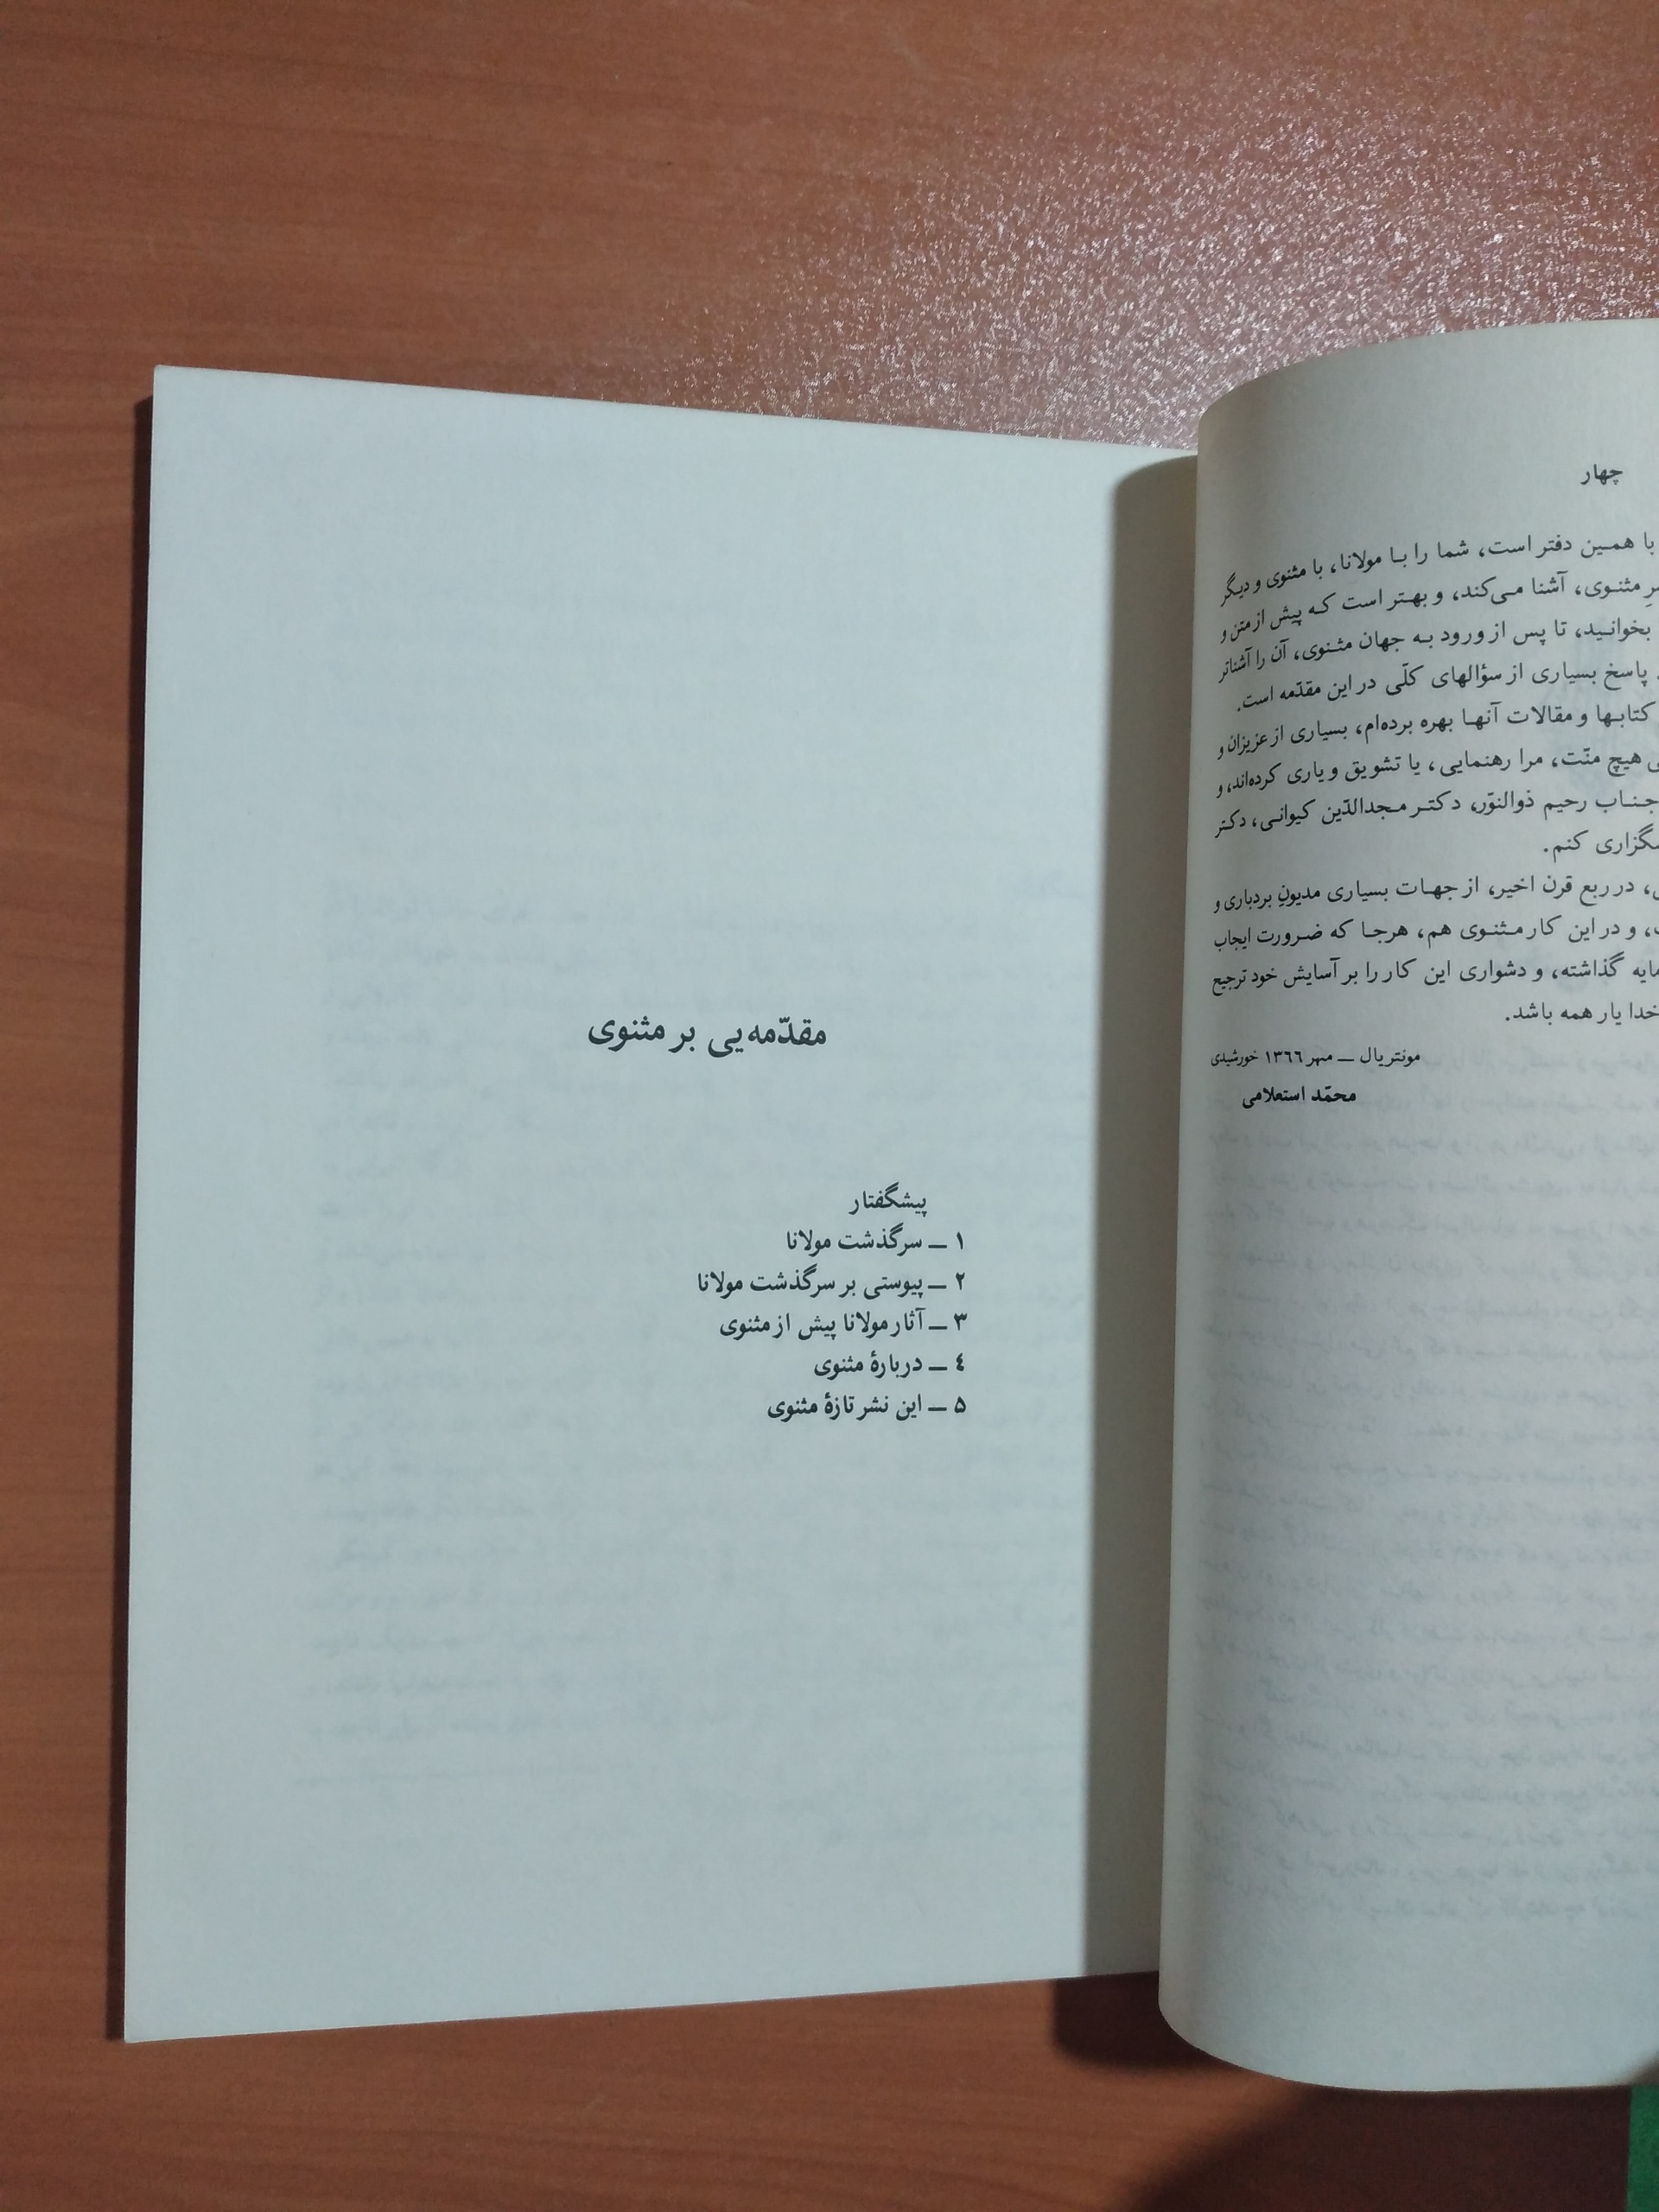 چهار
با همین دفتر است، شما را با مولانا، با مثنوی و دیگر
مثنوی، آشنا می‌کند، و بهتر است که پیش از متن و
بخوانید، تا پس از ورود به جهان مثنوی، آن را آشناتر
پاسخ بسیاری از سؤالهای کلّی در این مقدّمه است.
کتابها و مقالات آنها بهره برده‌ام، بسیاری از عزیزان و
هیچ منّت، مرا رهنمایی، یا تشویق و یاری کرده‌اند، و
جناب رحیم ذوالنّور، دکتر مجدالدّین کیوانی، دکتر
کنم.
در ربع قرن اخیر، از جهات بسیاری مدیونِ بردباری و
و در این کار مثنوی هم، هرجا که ضرورت ایجاب
مایه گذاشته، و دشواری این کار را بر آسایش خود ترجیع
خدا یار همه باشد.
مونتریال — مهر ۱۳۶۶ خورشیدی
محمّد استعلامی
مقدّمه‌یی بر مثنوی
پیشگفتار
۱ — سرگذشت مولانا
۲ — پیوستی بر سرگذشت مولانا
۳ — آثار مولانا پیش از مثنوی
٤ — دربارهٔ مثنوی
۵ — این نشر تازهٔ مثنوی